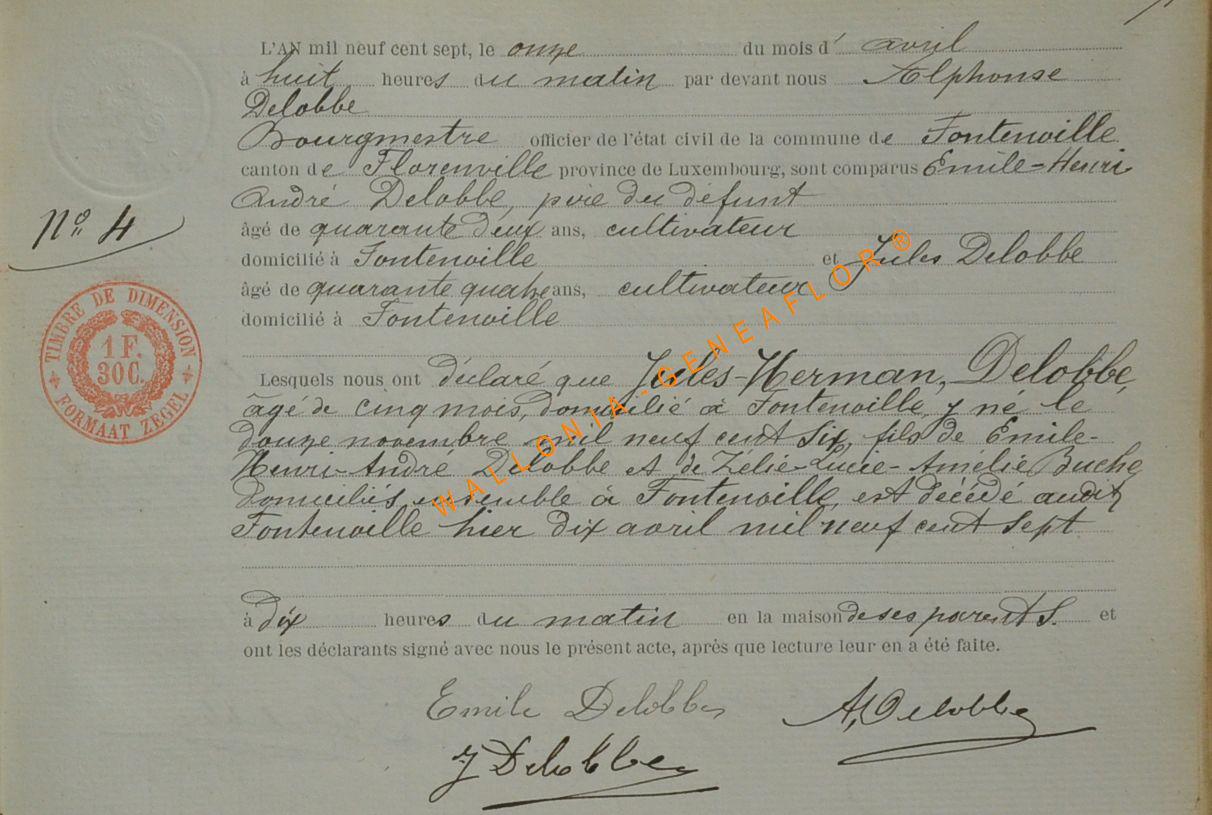 L'AN mil neuf cent sept, le onze du mois d' avril
à huit heures du matin par devant nous Alphonse
Delobbe
Bourgmestre officier de l'état civil de la commune de Fontenoille
canton de Florenville province de Luxembourg, sont comparus Emile-Henri
André Delobbe, père du défunt
âgé de quarante deux ans, cultivateur
domicilié à Fontenoille et Jules Delobbe
âgé de quarante quatre ans, cultivateur
domicilié à Fontenoille
Nº 4
TIMBRE DE DIMENSION
1 F.
30C.
FORMAAT ZEGEL
Lesquels nous ont déclaré que Jules-Herman, Delobbe,
âgé de cinq mois, domicilié à Fontenoille, y né le
douze novembre mil neuf cent six, fils de Emile-
Henri-André Delobbe et de Zélie-Lucie-Amélie Buche,
domiciliés ensemble à Fontenoille, est décédé audit
Fontenoille hier dix avril mil neuf cent sept
à dix heures du matin en la maison de ses parents. et
ont les déclarants signé avec nous le présent acte, après que lecture leur en a été faite.
Emile Delobbe A, Delobbe
J Delobbe
WALLONIA-GENEAFLOR®